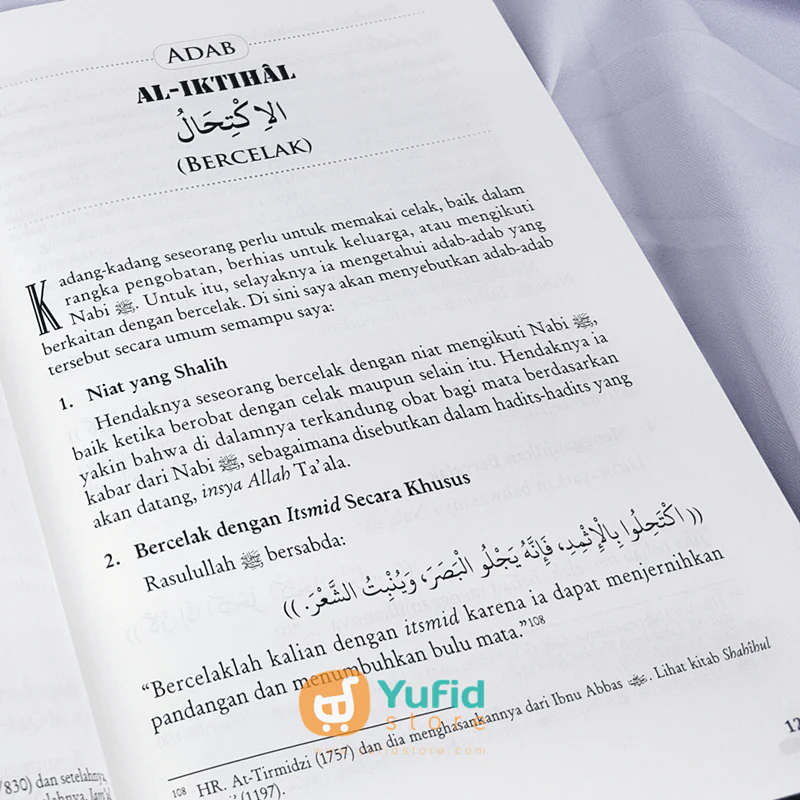 ADAB
AL-IKTIHÂL
الاِكْتِحَالُ
(BERCELAK)
Kadang-kadang seseorang perlu untuk memakai celak, baik dalam
rangka pengobatan, berhias untuk keluarga, atau mengikuti
Nabi ﷺ. Untuk itu, selayaknya ia mengetahui adab-adab yang
berkaitan dengan bercelak. Di sini saya akan menyebutkan adab-adab
tersebut secara umum semampu saya:
1. Niat yang Shalih
Hendaknya seseorang bercelak dengan niat mengikuti Nabi ﷺ,
baik ketika berobat dengan celak maupun selain itu. Hendaknya ia
yakin bahwa di dalamnya terkandung obat bagi mata berdasarkan
kabar dari Nabi ﷺ, sebagaimana disebutkan dalam hadits-hadits yang
akan datang, insya Allah Ta'ala.
2. Bercelak dengan Itsmid Secara Khusus
Rasulullah ﷺ bersabda:
(( اكْتَحِلُوا بِالْإِثْمِدِ، فَإِنَّهُ يَجْلُو الْبَصَرَ، وَيُنْبِتُ الشَّعْرَ. ))
“Bercelaklah kalian dengan itsmid karena ia dapat menjernihkan
pandangan dan menumbuhkan bulu mata.”108
Yufid
store
www.yufidstore.com
108 HR. At-Tirmidzi (1757) dan dia menghasankannya dari Ibnu Abbas. Lihat kitab Shahîhul
(1197).
12
7830) dan setelahnya,